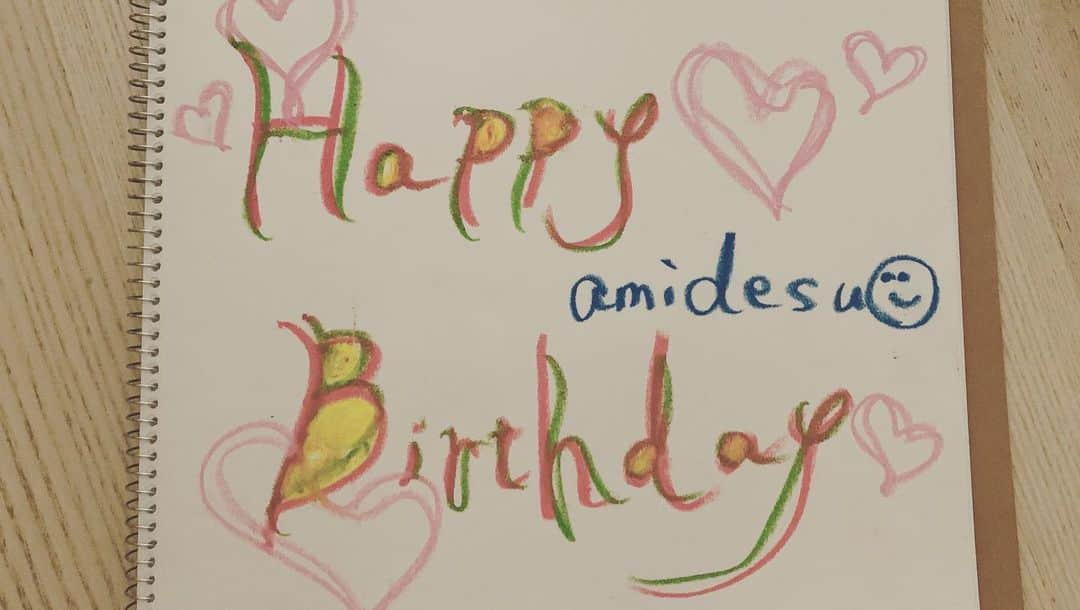 Happy
amidesu
Birthday